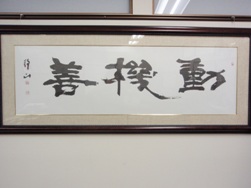 動機善